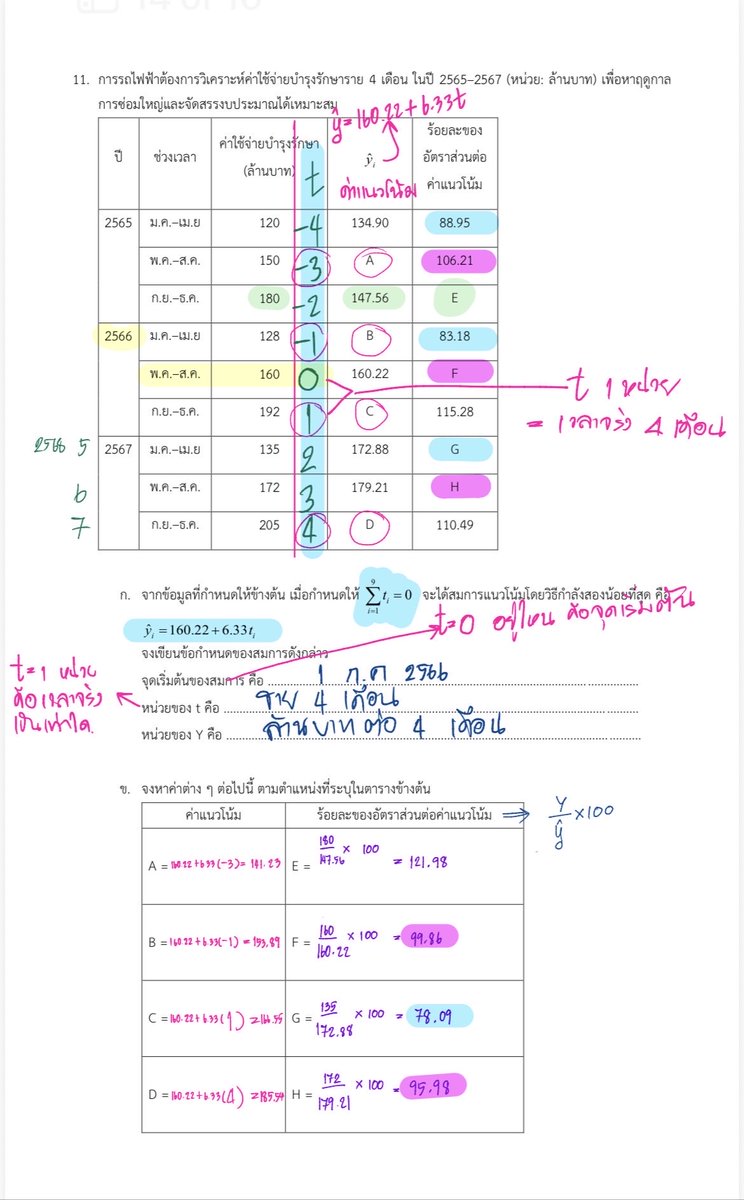 11. การรถไฟฟ้าต้องการวิเคราะห์ค่าใช้จ่ายบำรุงรักษาราย 4 เดือน ในปี 2565–2567 (หน่วย: ล้านบาท) เพื่อหาฤดูกาล
การซ่อมใหญ่และจัดสรรงบประมาณได้เหมาะสม
ŷ = 160.22 + 6.33t
ปี ช่วงเวลา ค่าใช้จ่ายบำรุงรักษา (ล้านบาท) t ŷᵢ ค่าแนวโน้ม ร้อยละของอัตราส่วนต่อค่าแนวโน้ม
2565 ม.ค.–เม.ย 120 -4 134.90 88.95
พ.ค.–ส.ค. 150 -3 A 106.21
ก.ย.–ธ.ค. 180 -2 147.56 E
2566 ม.ค.–เม.ย 128 -1 B 83.18
พ.ค.–ส.ค. 160 0 160.22 F
ก.ย.–ธ.ค. 192 1 C 115.28
t 1 หน่วย
= เวลาจริง 4 เดือน
2566 5 2567 ม.ค.–เม.ย 135 2 172.88 G
6 พ.ค.–ส.ค. 172 3 179.21 H
7 ก.ย.–ธ.ค. 205 4 D 110.49
ก. จากข้อมูลที่กำหนดให้ข้างต้น เมื่อกำหนดให้ ∑⁹ᵢ₌₁ tᵢ = 0 จะได้สมการแนวโน้มโดยวิธีกำลังสองน้อยที่สุด คือ
ŷᵢ = 160.22 + 6.33tᵢ
t=0 อยู่ไหน คือจุดเริ่มต้น
จงเขียนข้อกำหนดของสมการดังกล่าว
จุดเริ่มต้นของสมการ คือ 1 ก.ค 2566
หน่วยของ t คือ ราย 4 เดือน
หน่วยของ Y คือ ล้านบาท ต่อ 4 เดือน
t=1 หน่วย
คือเวลาจริง
เป็นเท่าใด
ข. จงหาค่าต่าง ๆ ต่อไปนี้ ตามตำแหน่งที่ระบุในตารางข้างต้น
ค่าแนวโน้ม ร้อยละของอัตราส่วนต่อค่าแนวโน้ม ⇒ Y/ŷ ×100
A = 160.22+6.33(-3)= 141.23 E = 180/147.56 × 100 = 121.98
B = 160.22+6.33(-1) = 153.89 F = 160/160.22 × 100 = 99.86
C = 160.22+6.33(1) = 166.55 G = 135/172.88 × 100 = 78.09
D = 160.22+6.33(4) = 185.54 H = 172/179.21 × 100 = 95.98